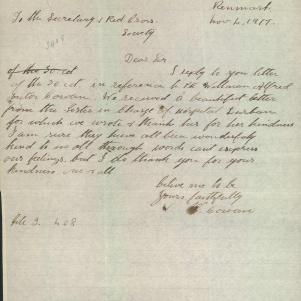 Renmark
Nov 4, 1917.
To the Secretary & Red Cross
Society
Dear Sir
of the 30 oct I reply to you letter
of the 30 oct. in reference to Pte William Alfred
Cowan. We received a beautiful letter
from the Sister in charge of Hospital Durban
for which we wrote & thank her for her kindness
I am sure they have all been wonderfuly
kind to us all through words cant express
our feelings. but I do thank you for your
kindness one & all
beleive me to be
Yours faithfully
Cowan